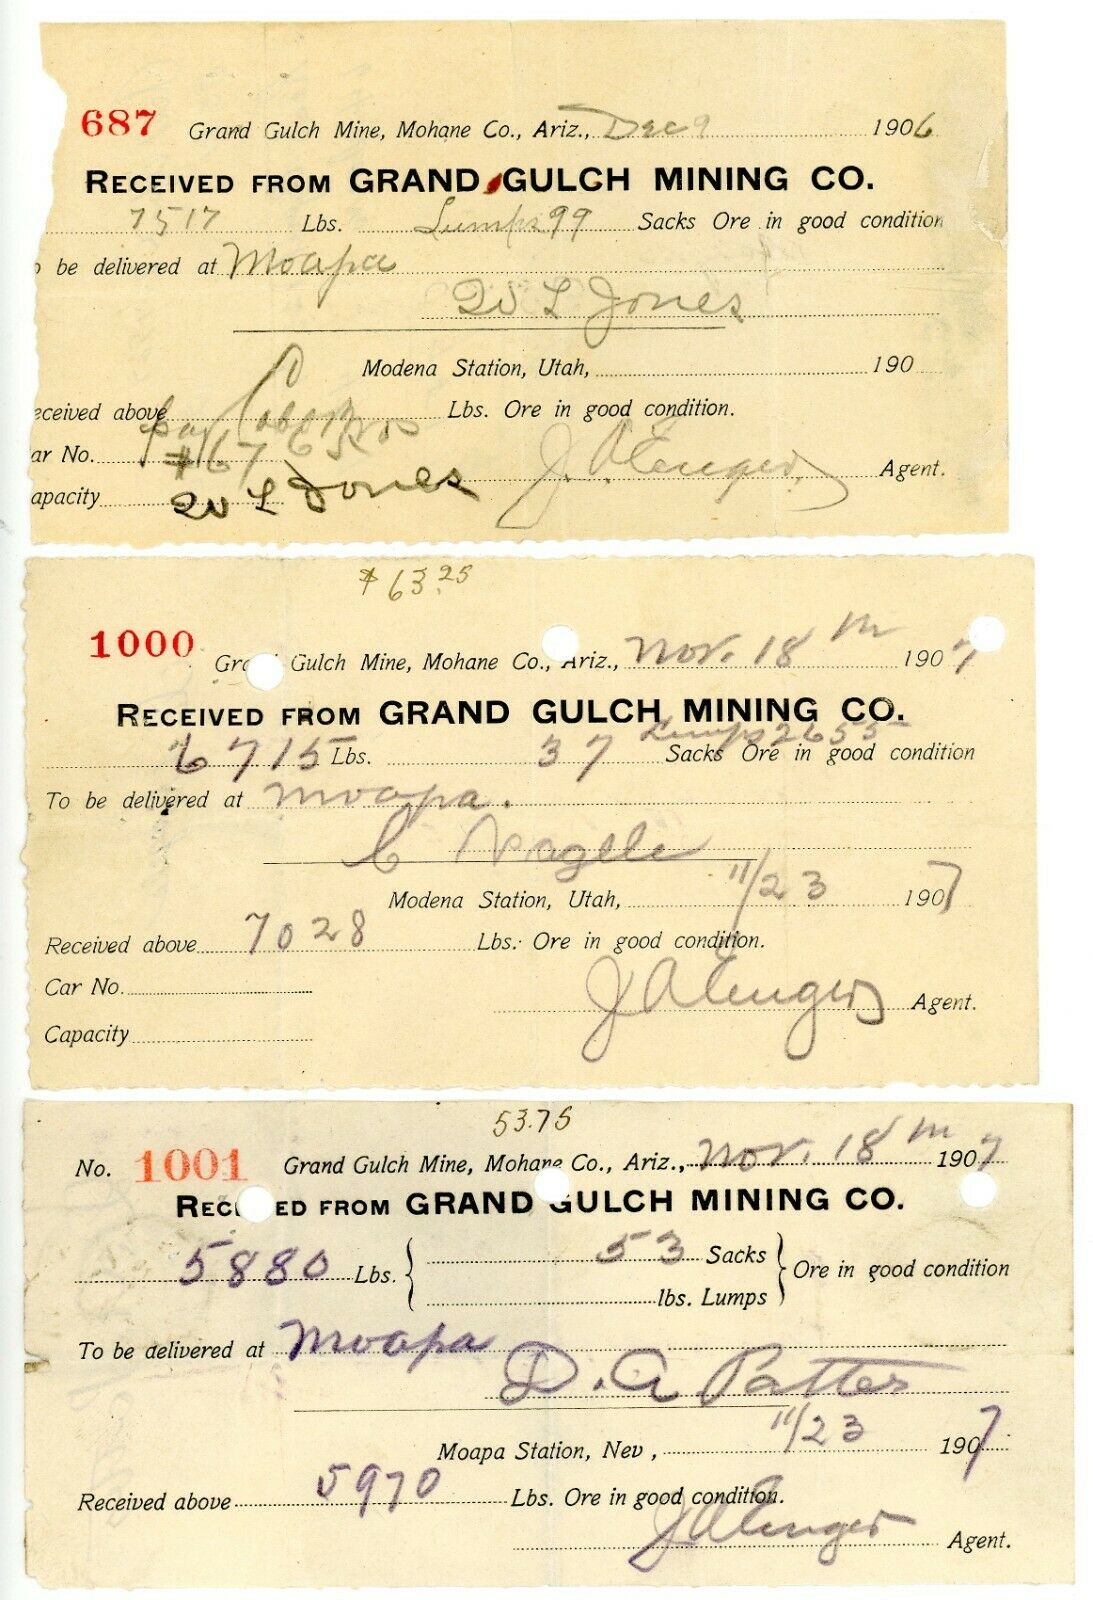 687 Grand Gulch Mine, Mohane Co., Ariz., Dec 9 1906
RECEIVED FROM GRAND GULCH MINING CO.
7517 Lbs. Lumps 99 Sacks Ore in good condition
o be delivered at Moapa
W L Jones
Modena Station, Utah, 190
eceived above Lbs. Ore in good condition.
pay Cobb Bros
ar No. #67 65 Agent.
apacity W L Jones
$63.25
1000 Gra Gulch Mine, Mohane Co., Ariz., Nov. 18th 1907
RECEIVED FROM GRAND GULCH MINING CO.
Lumps 2655
6715 Lbs. 37 Sacks Ore in good condition
To be delivered at Moapa.
C Nagele
Modena Station, Utah, 11/23 1907
Received above 7028 Lbs. Ore in good condition.
Car No. Agent.
Capacity
53.75
No. 1001 Grand Gulch Mine, Mohane Co., Ariz., Nov. 18th 1907
RECEIVED FROM GRAND GULCH MINING CO.
5880 Lbs. { 53 Sacks } Ore in good condition
lbs. Lumps
To be delivered at Moapa
D. A Patter
Moapa Station, Nev, 11/23 1907
Received above 5970 Lbs. Ore in good condition.
Agent.